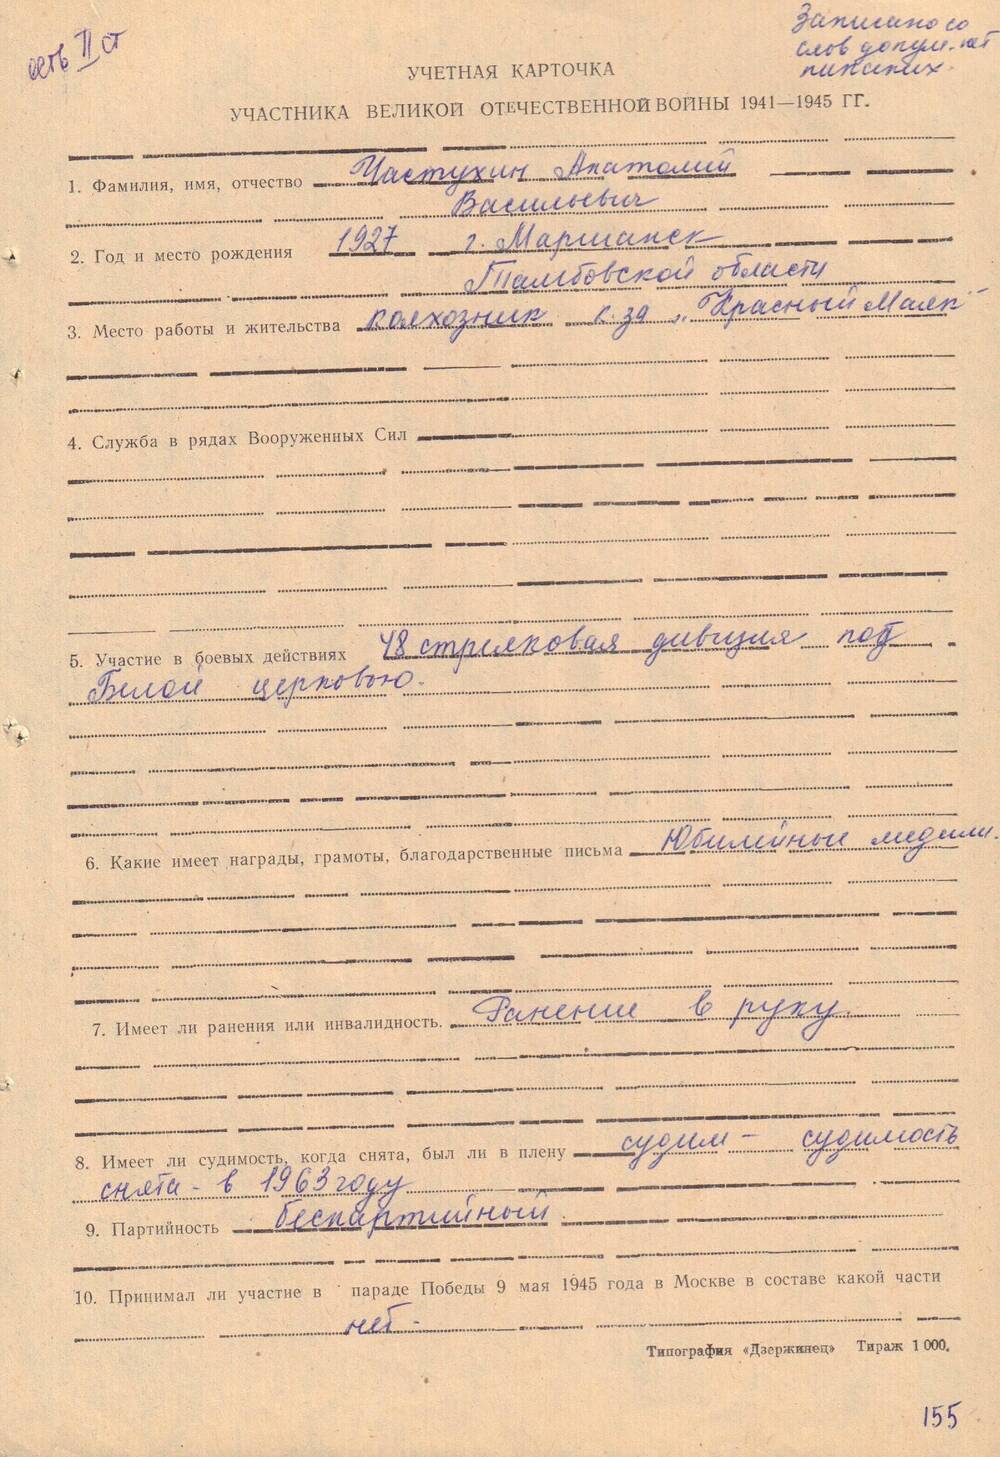 есть II ст
Записано со
слов докум. нет
никаких.
УЧЕТНАЯ КАРТОЧКА
УЧАСТНИКА ВЕЛИКОЙ ОТЕЧЕСТВЕННОЙ ВОЙНЫ 1941—1945 ГГ.
1. Фамилия, имя, отчество Частухин Анатолий
Васильевич
2. Год и место рождения 1927 г. Маршанск
Тамбовской области
3. Место работы и жительства колхозник к-за „Красный Маяк"
4. Служба в рядах Вооруженных Сил
5. Участие в боевых действиях 48 стрелковая дивизия под
Белой церковью.
6. Какие имеет награды, грамоты, благодарственные письма Юбилейные медали.
7. Имеет ли ранения или инвалидность. Ранение в руку.
8. Имеет ли судимость, когда снята, был ли в плену судим — судимость
снята - в 1963 году
9. Партийность беспартийный.
10. Принимал ли участие в параде Победы 9 мая 1945 года в Москве в составе какой части
нет -
Типография «Дзержинец» Тираж 1 000.
155